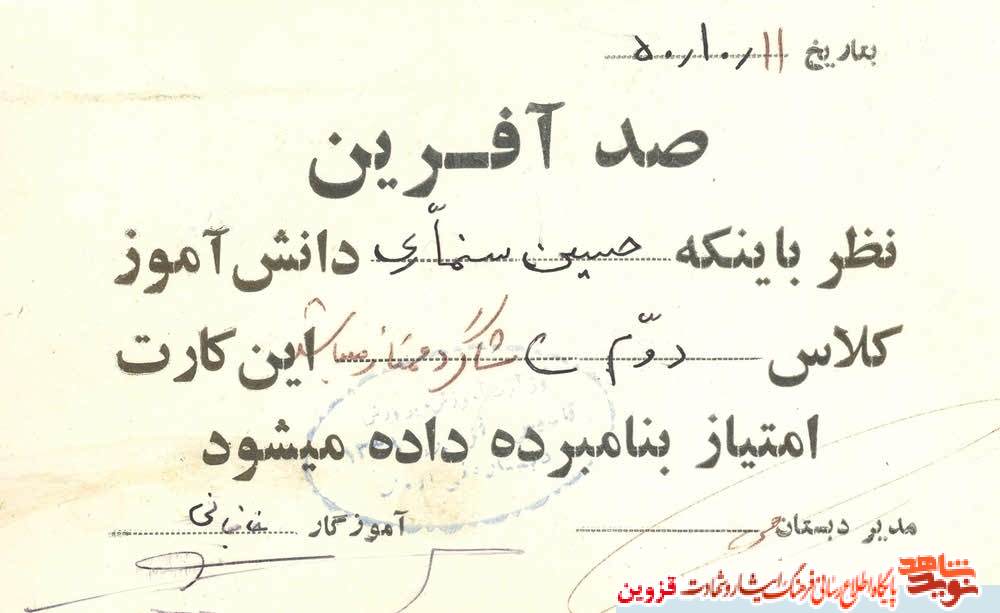 بتاریخ ۵۰/۱۰/۱۱
صد آفرین
نظر باینکه حسین سنماری دانش آموز
کلاس دوّم شاگرد ممتاز میباشد این کارت
امتیاز بنامبرده داده میشود
مدیر دبستان آموزگار
نوید شاهد پایگاه اطلاع رسانی فرهنگ ایثار و شهادت قزوین